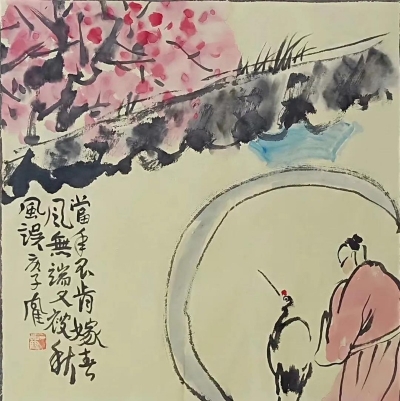 當年不肯嫁春
風無端又被秋
風誤 庚子